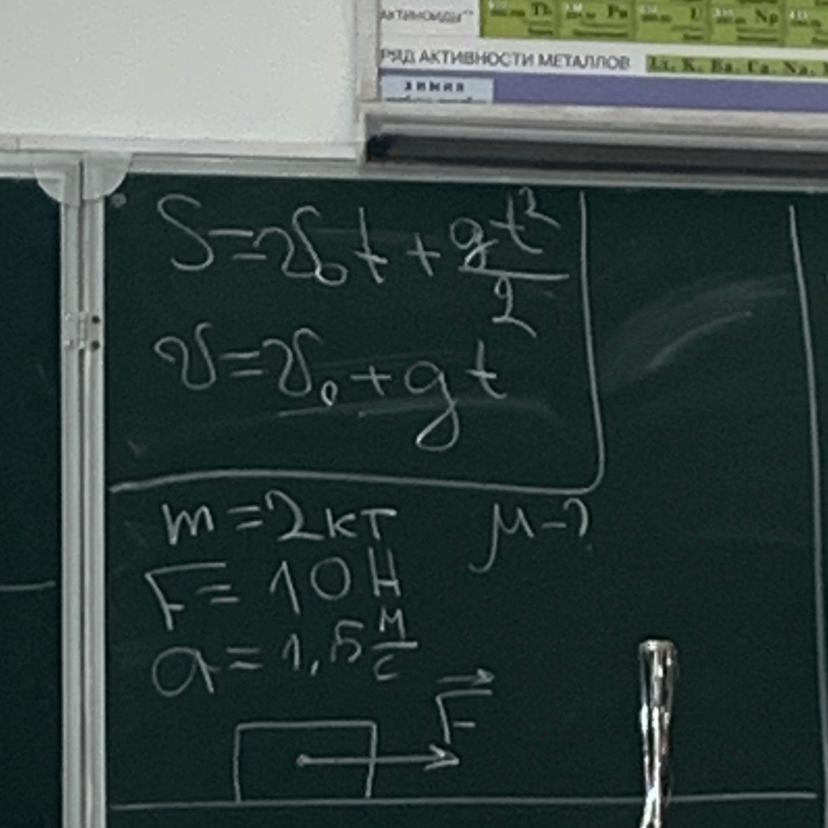 АКТИНОИДЫ**
Th Pa U Np
РЯД АКТИВНОСТИ МЕТАЛЛОВ Li, K, Ba, Ca, Na,
ХИМИЯ
S=υ₀t+gt²/2
υ=υ₀+gt
m=2кг μ-?
F=10Н
a=1,5 м/с
F